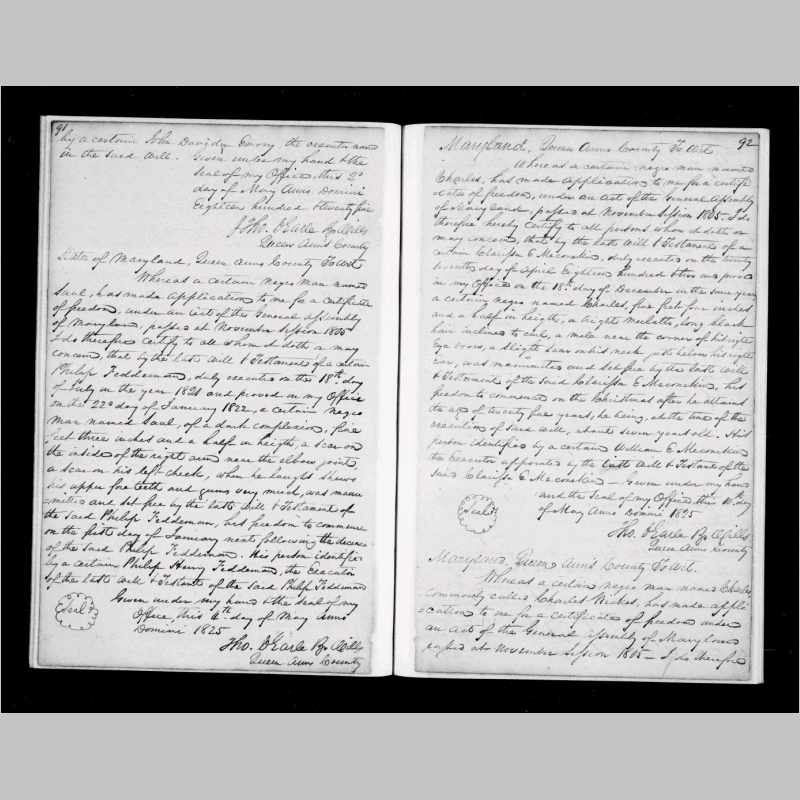 91
by a certain John Davidge Emory the executor named
in the said will. Given under my hand & the
Seal of my Office this 2d
day of May Anno Domini
Eighteen hundred & twenty five
Tho. C Earle Rg Wills
Queen Ann's County
State of Maryland, Queen Anns County To Wit
Whereas a certain negro man named
Saul, has made application to me for a certificate
of freedom, under an act of the General Assembly
of Maryland, passed at November Session 1805
I do therefore certify to all whom it doth or may
concern, that by the last will & Testament of a certain
Philip Feddeman, duly executed on the 18th day
of July in the year 1821 and proved in my Office
on the 22d day of January 1822, a certain negro
man named Saul, of a dark complexion, five
feet three inches and a half in heigth, a scar on
the inside of the right arm near the elbow joint,
a scar on his left cheek, when he laughs shews
his upper fore teeth and gums very much, was manu
mitted and set free by the last will & Testament of
the said Philip Feddeman, his freedom to commence
on the first day of January next following the decease
of the said Philip Feddeman. His person identified
by a certain Philip Henry Feddeman, the Executor
of the last will & Testante of the said Philip Feddeman
Given under my hand & the seal of my
Office, this 4th day of May Anno
Domini 1825
Seal
Tho. C Earle Rg Wills
Queen Anns County
92
Maryland, Queen Anns County To Wit
Whereas a certain negro man named
Charles, has made application to me for a certifi
cates of freedom, under an act of the General Assembly
of Maryland, passed at November Session 1805 I do
therefore hereby certify to all persons whom it doth or
may concern, that by the last will & Testament of a
certain Clarissa E Meconekin, duly executed on the twenty
seventh day of April Eighteen hundred & two and proved
in my Office on the 18th day of December in the same year
a certain negro named Charles, five feet four inches
and a half in heigth, a bright mulatto, long black
hair inclined to curl, a mole near the corner of his right
eye brow, a slight scar on his neck just below his right
ear, was manumitted and set free by the last will
& Testament of the said Clarissa E Meconekin, his
freedom to commence on the Christmas after he attains
the age of twenty five years, he being, at the time of the
execution of said will, about seven years old. His
person identified by a certain William E Meconekin
the Executor appointed by the last will & Testante of the
said Clarissa E Meconekin — Given under my hand
and the Seal of my Office this 10th day
of May Anno Domini 1825
Seal
Tho. C Earle Rg Wills
Queen Anns County
Maryland Queen Ann's County To Wit.
Whereas a certain negro man named Charles
commonly called Charles Wickes, has made appli
cation to me for a certificate of freedom under
an act of the General Assembly of Maryland
passed at November Session 1805 — I do therefore